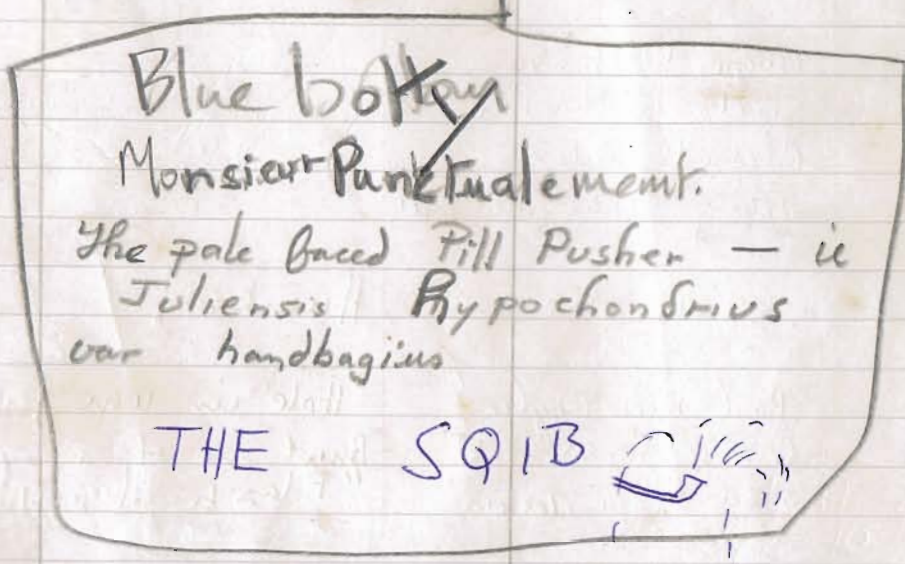 Blue bottom
Monsieur Punktualememt.
The pale faced Pill Pusher — ie
Juliensis Hypochondrius
var handbagius
THE SQIB